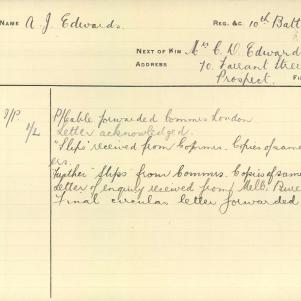 NAME A. J. Edwards. REG. &C. 10th Batt
NEXT OF KIN Mrs C. W. Edward
ADDRESS 70. Farrant Stree
Prospect.
P/Cable forwarded Commrs London
Letter acknowledged.
"Slips" received from Commrs. Copies of same
ers.
Further "slips from Commrs. Copies of same
Letter of enquiry received from Melb. Bure
Final circular letter forwarded